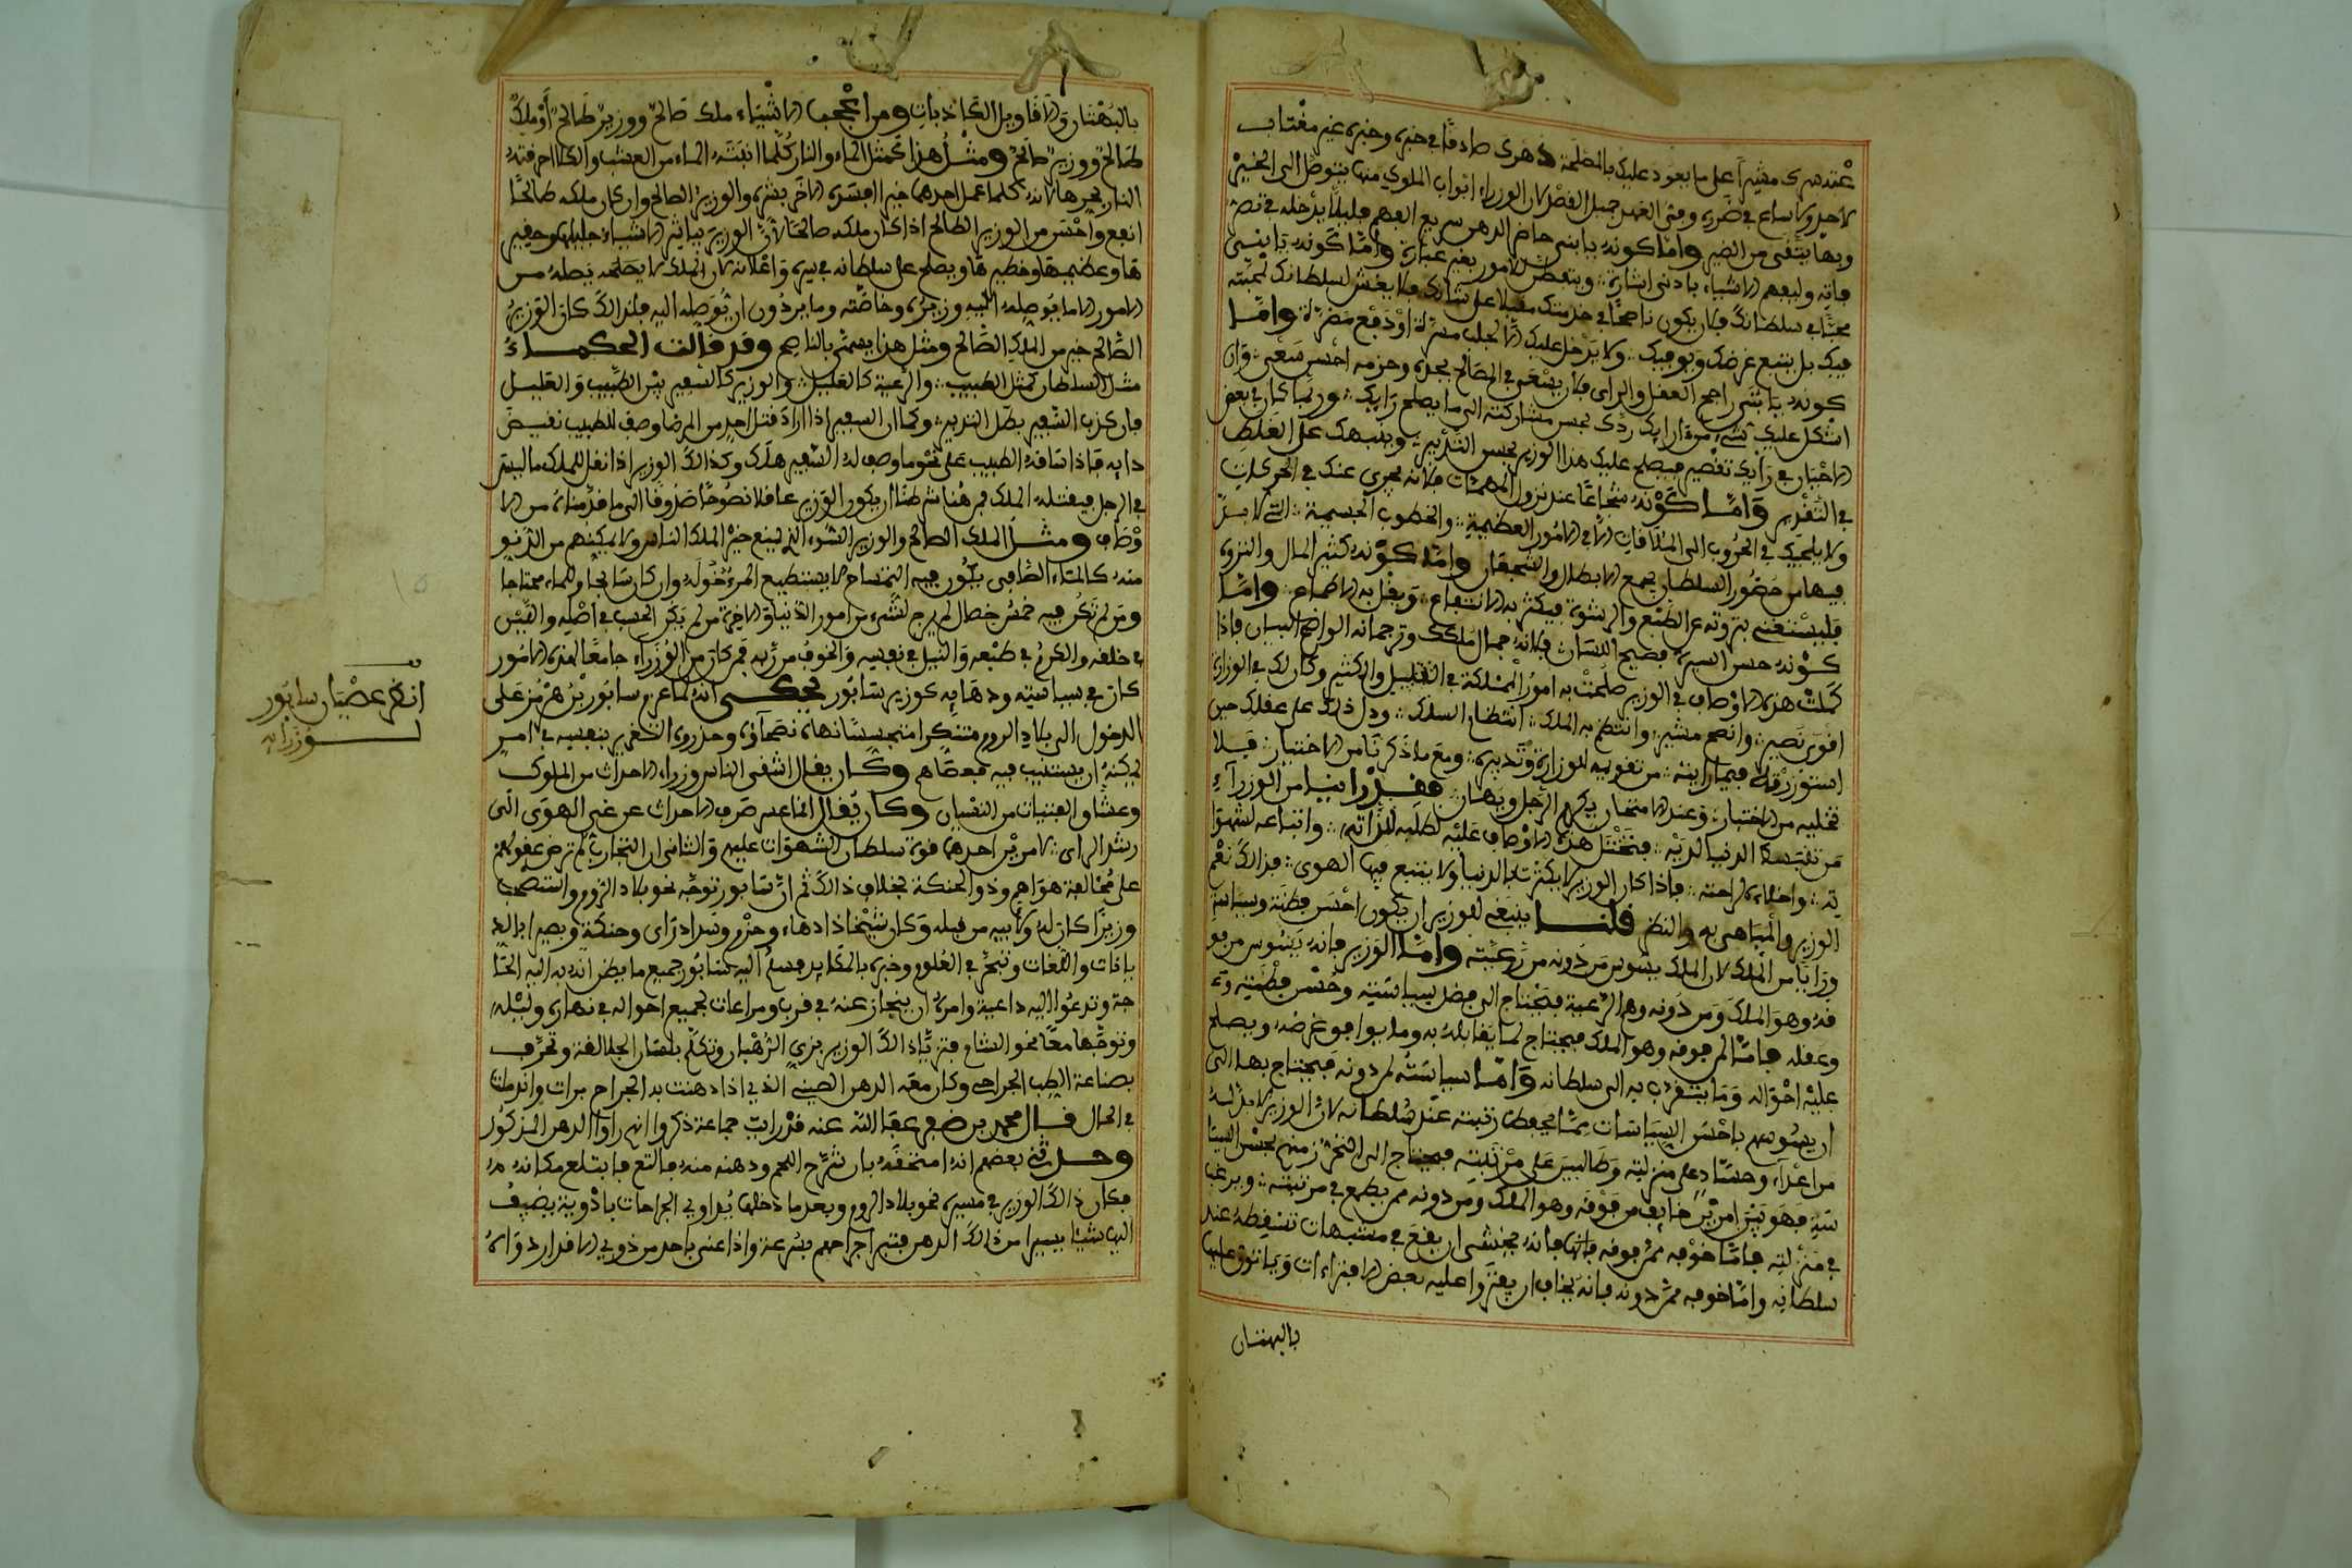 عنده سرك مشيرا على ما يعود عليك بالمصلحة دهرك صادقا في خبره وخبره غير مغتاب
لاحد ولا ساع في ضرره وفي العهد جميل الفضل لان الوزراء ابواب الملوك منها يتوصل الى الخير
وبها يتقى من الضير واما كونه يا بني حاضر الذهن سريع الفهم
فانه وليفهم الاشياء بادنى اشارة ويتعطن للامور بغير عبارة واما كونه يا بني
محبا في سلطانك فان يكون ناصحا في خدمتك مقبلا على شانك فلا يغش لسلطانك لمحبته
فيك بل يتبع غرضك ويوفيك ولا يدخل عليك الا لجلب مسرة او دفع مضرة واما
كونه يا بني راجح العقل والراى فان يسعى في المصالح بجده وحزمه احسن سعي وان
اشكل عليك شيء من ارايك ردك بحسن مشاركته الى ما يصلح رايك وربما كان في بعض
الاحيان في رايك تقصير فيصلح عليك هذا الوزير بحسن التدبير وينبهك على الغلط
في التقدير واما كونه شجاعا عند نزول المهمات فلانه يجرى عنك في الحركات
ولا يلجيك في الحروب الى الملاقات الا في الامور العظيمة والخطوب الجسيمة التي لا بد
فيها من حضور السلطان بجمع الابطال والشجعان واما كونه كثير المال والثروة
فليستغنى بثروته عن الطمع والرشوة فيكثر به الانتفاع ويقل به الاطماع واما
كونه حسن السيرة فصيح اللسان فلانه جمال ملكك وترجمانه الواضح البيان فاذا
كملت هذه الاوصاف في الوزير صلحت به امور المملكة في القليل والكثير وكان لك في الوزارة
اقوى نصير وانصح مشير وانتظم به الملك انتظام السلك ودل ذلك على عقلك حين
استوزرته فيما رايته من تفويه للوزارة وتدبيره ومع ما ذكرنا من الاختبار فلا
تخليه من الاختبار وعند الامتحان يكرم الرجل ويهان فقد راينا من الوزراء
من تفسده الدنيا الدنية فتختل هذه الاوصاف عليه لطلبه للذاته واتباعه لشهوا
ته واخلاده لراحته فاذا كان الوزير لا يكترث بالدنيا ولا يتبع فيها الهوى فذالك نعم
الوزير والمباهى به والنظر قلنا ينبغي للوزير ان يكون احسن فطنة وسياسة
ورايا من الملك لان الملك يسوس من دونه من رعيته واما الوزير فانه يسوس من فو
قه وهو الملك ومن دونه وهم الرعية فيحتاج الى فضل سياسته وحسن فطنته وع
وعقله فاما لمن فوقه وهو الملك فيحتاج لما يقابله به وما يوافق غرضه ويصلح
عليه احواله وما يتقرب به الى سلطانه واما سياسته لمن دونه فيحتاج بها الى
ان يسوسهم باحسن السياسات مما يحفظ رتبته عند سلطانه لان الوزير لا بد له
من اعداء وحساد على منزلته وطالبين على مرتبته فيحتاج الى التحرز منهم بحسن السيا
سة فهو بين امرين خايف من فوقه وهو الملك ومن دونه ممن يطمع في مرتبته ويرغب
في منزلته فاما خوفه ممن فوقه فانه يخشى ان يقع في مشبهات تسقطه عند
سلطانه واما خوفه ممن دونه فانه يخاف ان يفتروا عليه بعض الافتراءات وياتون عليه
بالبهتان
بالبهتان والاقاويل الكاذبات ومن اعجب الاشياء ملك صالح ووزير طالح او ملك
طالح ووزير صالح ومثل هذا كمثل الماء والنار كلما انبته الماء من العشب والكلا احرقته
النار بحرها لانه كلما عمل احدهما خيرا افسده الاخر بشره والوزير الصالح وان كان ملكه طالحا
انفع واحسن من الوزير الطالح اذا كان ملكه صالحا لان الوزير يباشر الاشياء جليلها وحقير
ها وعظيمها وخطيرها ويصلح على سلطانه في سره واعلانه لان الملك لا يصله من
الامور الا ما يوصله اليه وزيره وخاصته وما يردون ان يوصله اليه فلذالك كان الوزير
الصالح خير من الملك الصالح ومثل هذا يسمى بالناصح وقد قالت الحكماء
مثل السلطان كمثل الطبيب والرعية كالعليل والوزير كالسفير بين الطبيب والعليل
فان كذب السفير بطل التدبير وكما ان السفير اذا اراد قتل احد من المرضا وصف للطبيب نقيض
دايه فاذا سقاه الطبيب على نحو ما وصف له السفير هلك وكذالك الوزير اذا نقل للملك ما ليس
في الرجل فيقتله الملك فمن هنا شرطنا ان يكون الوزير عاقلا نصوحا صدوقا الى ما قدمناه من الا
وصاف ومثل الملك الصالح والوزير السوء الذي يمنع خير الملك الناس ولا يمكنهم من الدنو
منه كالماء الصافى يكون فيه التمساح لا يستطيع المرء دخوله وان كان سابحا وللماء محتاجا
ومن لم تكن فيه خمس خصال لم يرج لشيء من امور الدنيا والاخرة من لم يكن الحسب في اصله والدين
في خلقه والكرم في طبعه والنبل في نفسه والخوف من ربه فمن كان من الوزراء جامعا لهذه الامور
كان في سياسته ودهايه كوزير سابور يحكى انه لما عزم سابور بن هرمز على
الدخول الى بلاد الروم متنكرا متجسسا نهاه نصحاؤه وحذروه التغرير بنفسه في امر
يمكنه ان يستنيب فيه فعصاهم وكان يقال اشقى الناس وزراء الاحداث من الملوك
وعشاق الفتيات من الشبان وكان يقال انما عسر صرف الاحداث عن غي الهوى الى
رشد الراى لامرين احدهما قوة سلطان الشهوات عليهم والثاني ان التجارب لم ترض عقولهم
على مخالفة هواهم وذو الحنكة بخلاف ذالك ثم ان سابور توجه نحو بلاد الروم واستصحب
وزيرا كان له ولابيه من قبله وكان شيخا ذا دهاء وحزم وسداد راى وحنكة وبصر بالد
يانات واللغات وتبحر في العلوم وخبرة بالمكايد فسلم اليه سابور جميع ما يظن انه به اليه الحا
جة وتدعوا اليه داعية وامره ان ينحاز عنه في قرب ومراعات لجميع احواله في نهاره وليله
وتوجها معا نحو الشام فتزيا ذالك الوزير بزي الرهبان وتكلم بلسان الجلالقة وتحرف
بصناعة الطب الجراحي وكان معه الدهن الصيني الذي اذا دهنت به الجراح برات واندملت
في الحال قال محمد بن ظفر عفا الله عنه قد رايت جماعة ذكروا انهم راوا الدهن المذكور
وحدثني بعضهم انه امتحنه بان شرح اللحم ودهنه منه فالتم
فكان ذالك الوزير في مسيره نحو بلاد الروم وبعد ما دخلها يداوي الجراحات بادوية يضيف
اليها شيئا يسيرا من ذالك الدهن فتبرا جراحهم بسرعة واذا عنى باحد من ذوي الاقدار دواه
انظر عصيان سابور
لوزرايه